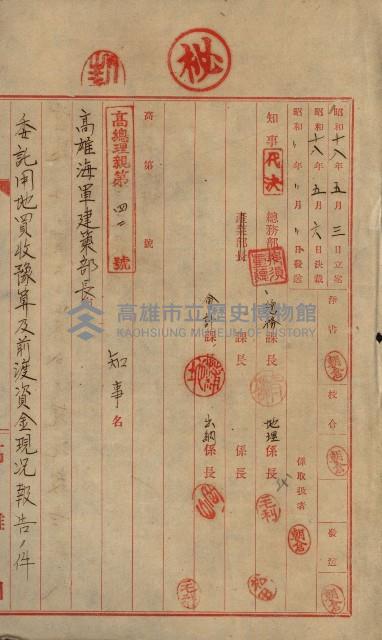 秘
昭和十八年五月三日立案
淨書
朝倉
校合
朝倉
發送
昭和十八年五月六日決裁
昭和 年 月 日發送
係取扱者
朝倉
知事
代決
總務部長
總務課長
地理係長
毛利
產業部長
課長
係長
會計課長
出納係長
毛利
高第 號
高總理親第 四二 號
高雄海軍建築部長
知事名
委託用地買收豫算及前渡資金現況報告ノ件
高雄市立歷史博物館
KAOHSIUNG MUSEUM OF HISTORY